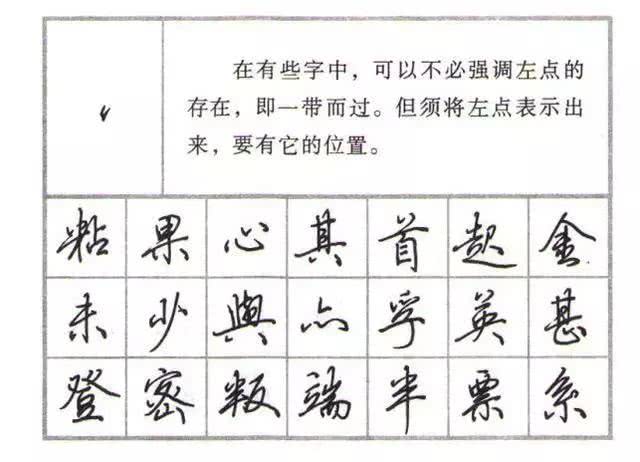 在有些字中，可以不必强调左点的
存在，即一带而过。但须将左点表示出
来，要有它的位置。
粘 果 心 其 首 超 金
未 少 與 亦 孚 英 甚
登 密 粄 端 半 票 系